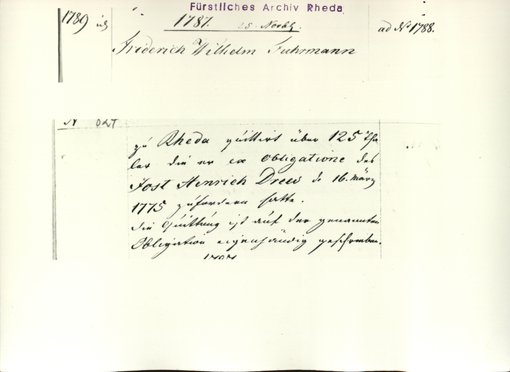 Fürstliches Archiv Rheda
1789 1787. 25. Novbr. ad № 1788.
Friderich Wilhelm Fuhrmann
N ORT
zu Rheda quittirt über 125 Tha
ler die er ex obligatione des
Jost Henrich Drew de 16. März
1775 zu fordern hatte.
die Quittung ist auf der genannten
Obligation eigenhändig geschrieben.